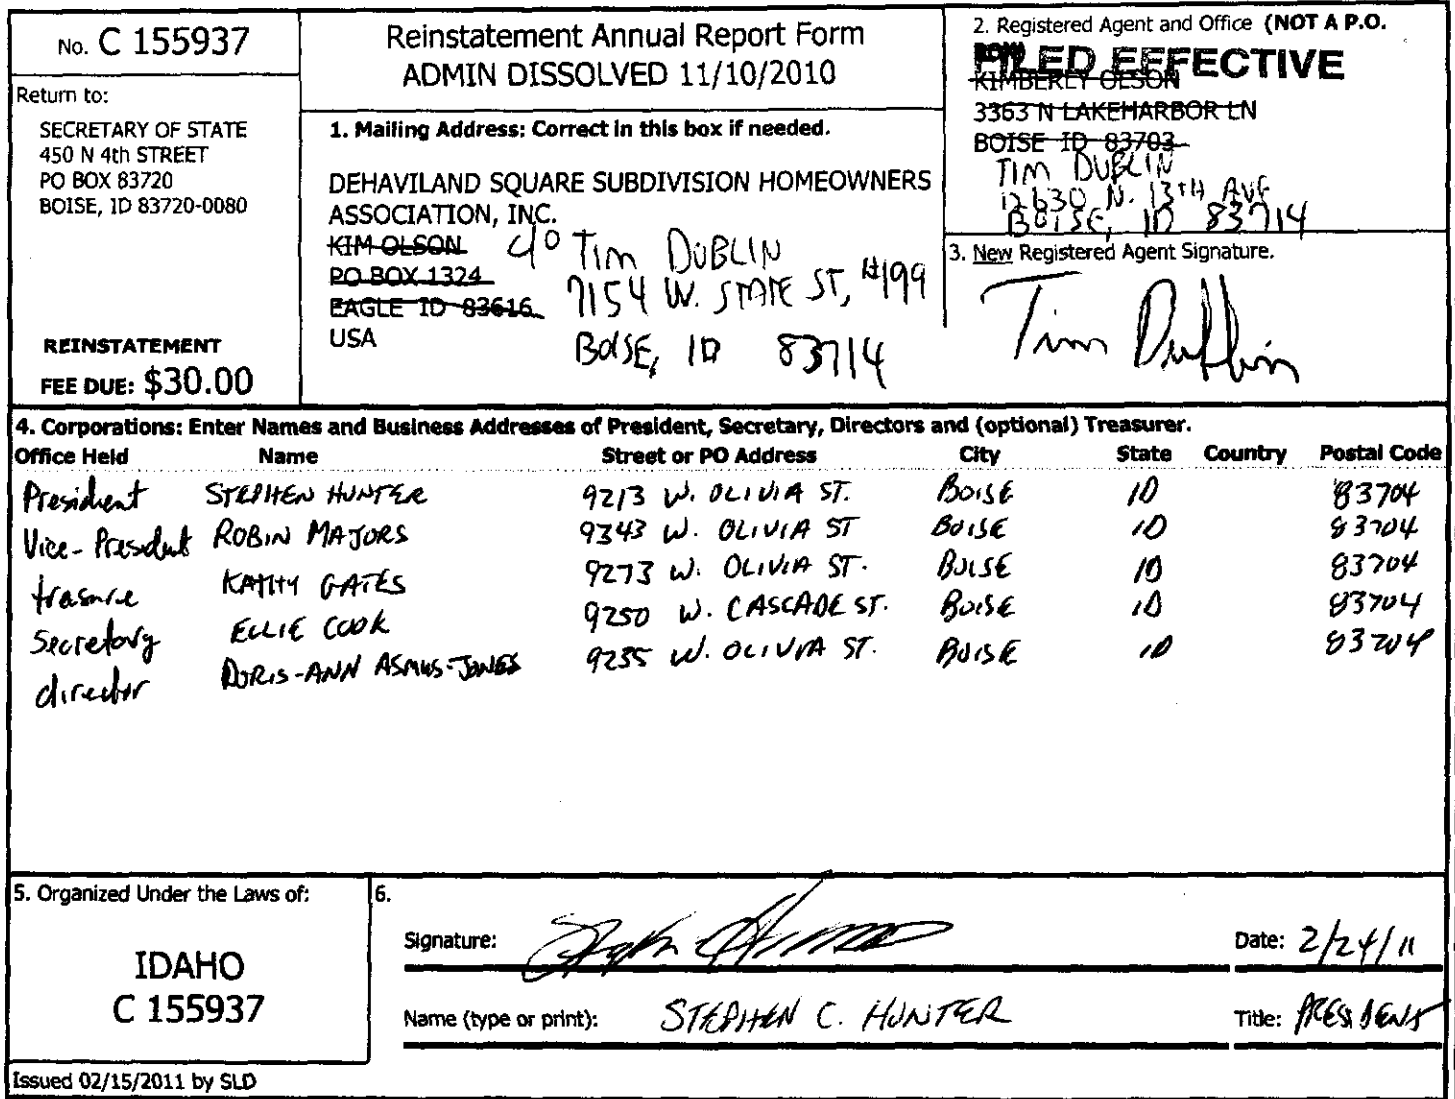 No. C 155937
Return to:
SECRETARY OF STATE
450 N 4th STREET
PO BOX 83720
BOISE, ID 83720-0080
REINSTATEMENT
FEE DUE: $30.00
Reinstatement Annual Report Form
ADMIN DISSOLVED 11/10/2010
1. Mailing Address: Correct in this box if needed.
DEHAVILAND SQUARE SUBDIVISION HOMEOWNERS
ASSOCIATION, INC.
KIM OLSON
PO BOX 1324
EAGLE ID 83616
USA
c/o TIM DUBLIN
7154 W. STATE ST, #199
BOISE, ID 83714
2. Registered Agent and Office (NOT A P.O.
FILED EFFECTIVE
KIMBERLY OLSON
3363 N LAKEHARBOR LN
BOISE ID 83703
TIM DUBLIN
12630 N. 13TH AVE
BOISE, ID 83714
3. New Registered Agent Signature.
Tim Dublin
4. Corporations: Enter Names and Business Addresses of President, Secretary, Directors and (optional) Treasurer.
Office Held Name Street or PO Address City State Country Postal Code
President STEPHEN HUNTER 9213 W. OLIVIA ST. BOISE ID 83704
Vice-President ROBIN MAJORS 9343 W. OLIVIA ST BOISE ID 83704
KATHY GATES 9273 W. OLIVIA ST. BOISE ID 83704
Secretary ELLIE COOK 9250 W. CASCADE ST. BOISE ID 83704
director DORIS-ANN ASMUS-JONES 9255 W. OLIVIA ST. BOISE ID 83704
5. Organized Under the Laws of:
IDAHO
C 155937
6.
Signature: Stephen Hunter
Date: 2/24/11
Name (type or print): STEPHEN C. HUNTER
Title: PRESIDENT
Issued 02/15/2011 by SLD